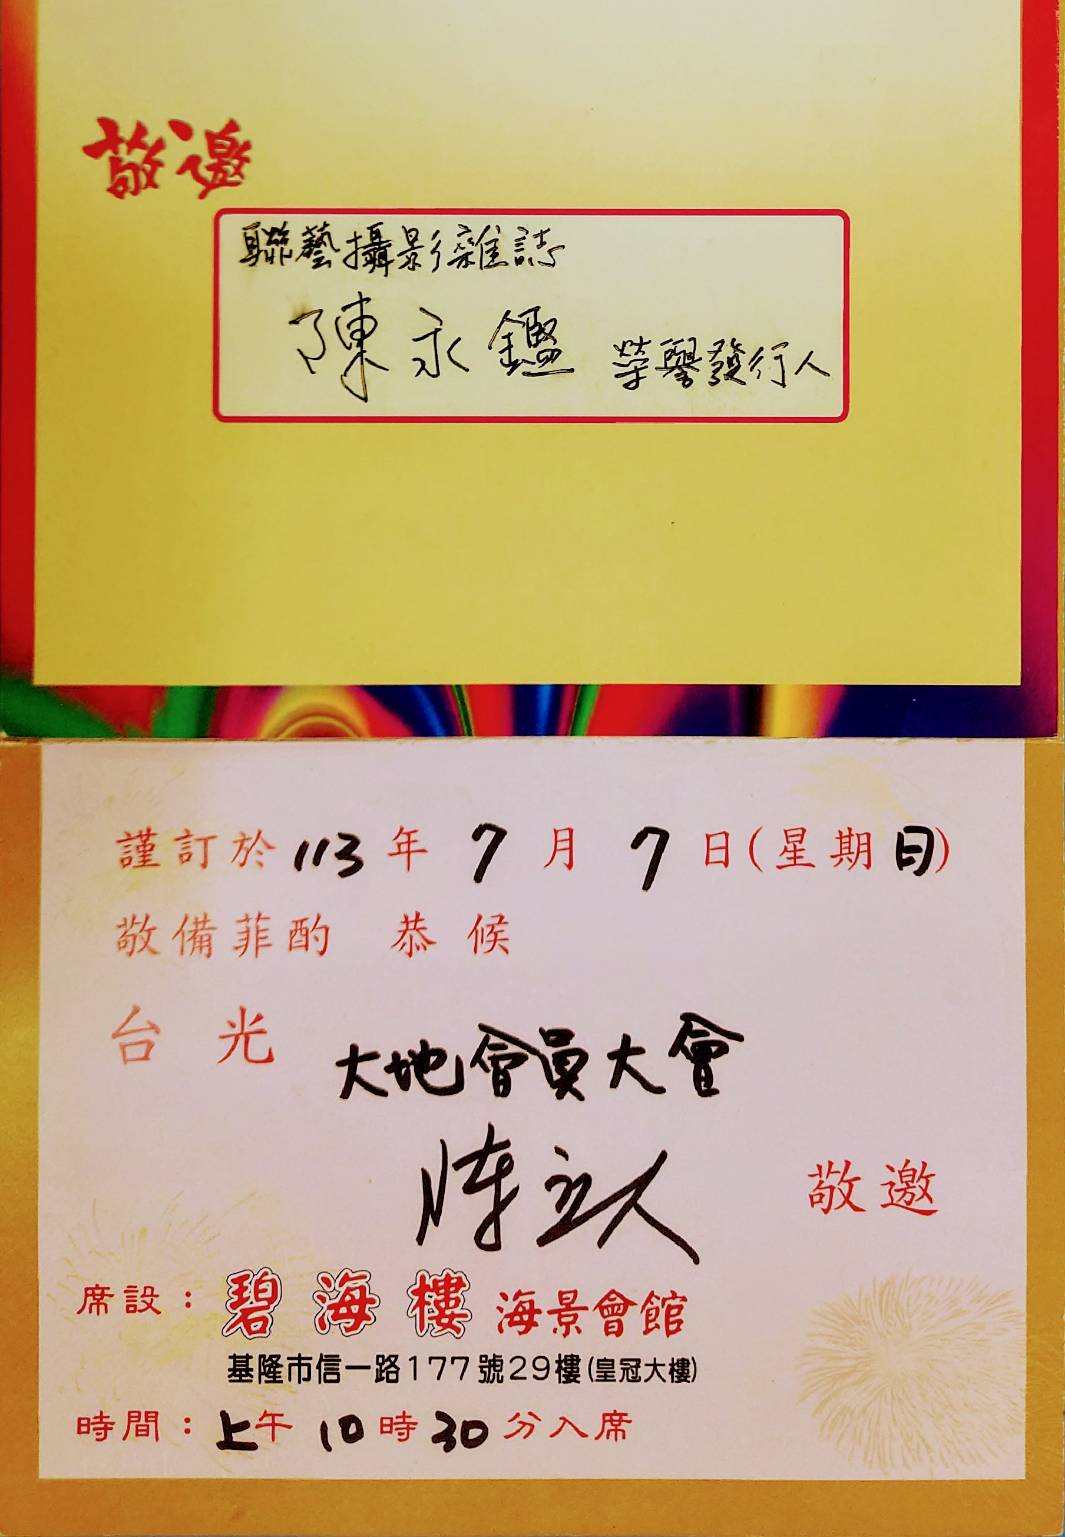 敬邀
聯藝攝影雜誌
陳永鑑 榮譽發行人
謹訂於113年7月7日(星期日)
敬備菲酌 恭候
台光 大地會員大會
陳立人 敬邀
席設：碧海樓海景會館
基隆市信一路177號29樓(皇冠大樓)
時間：上午10時30分入席